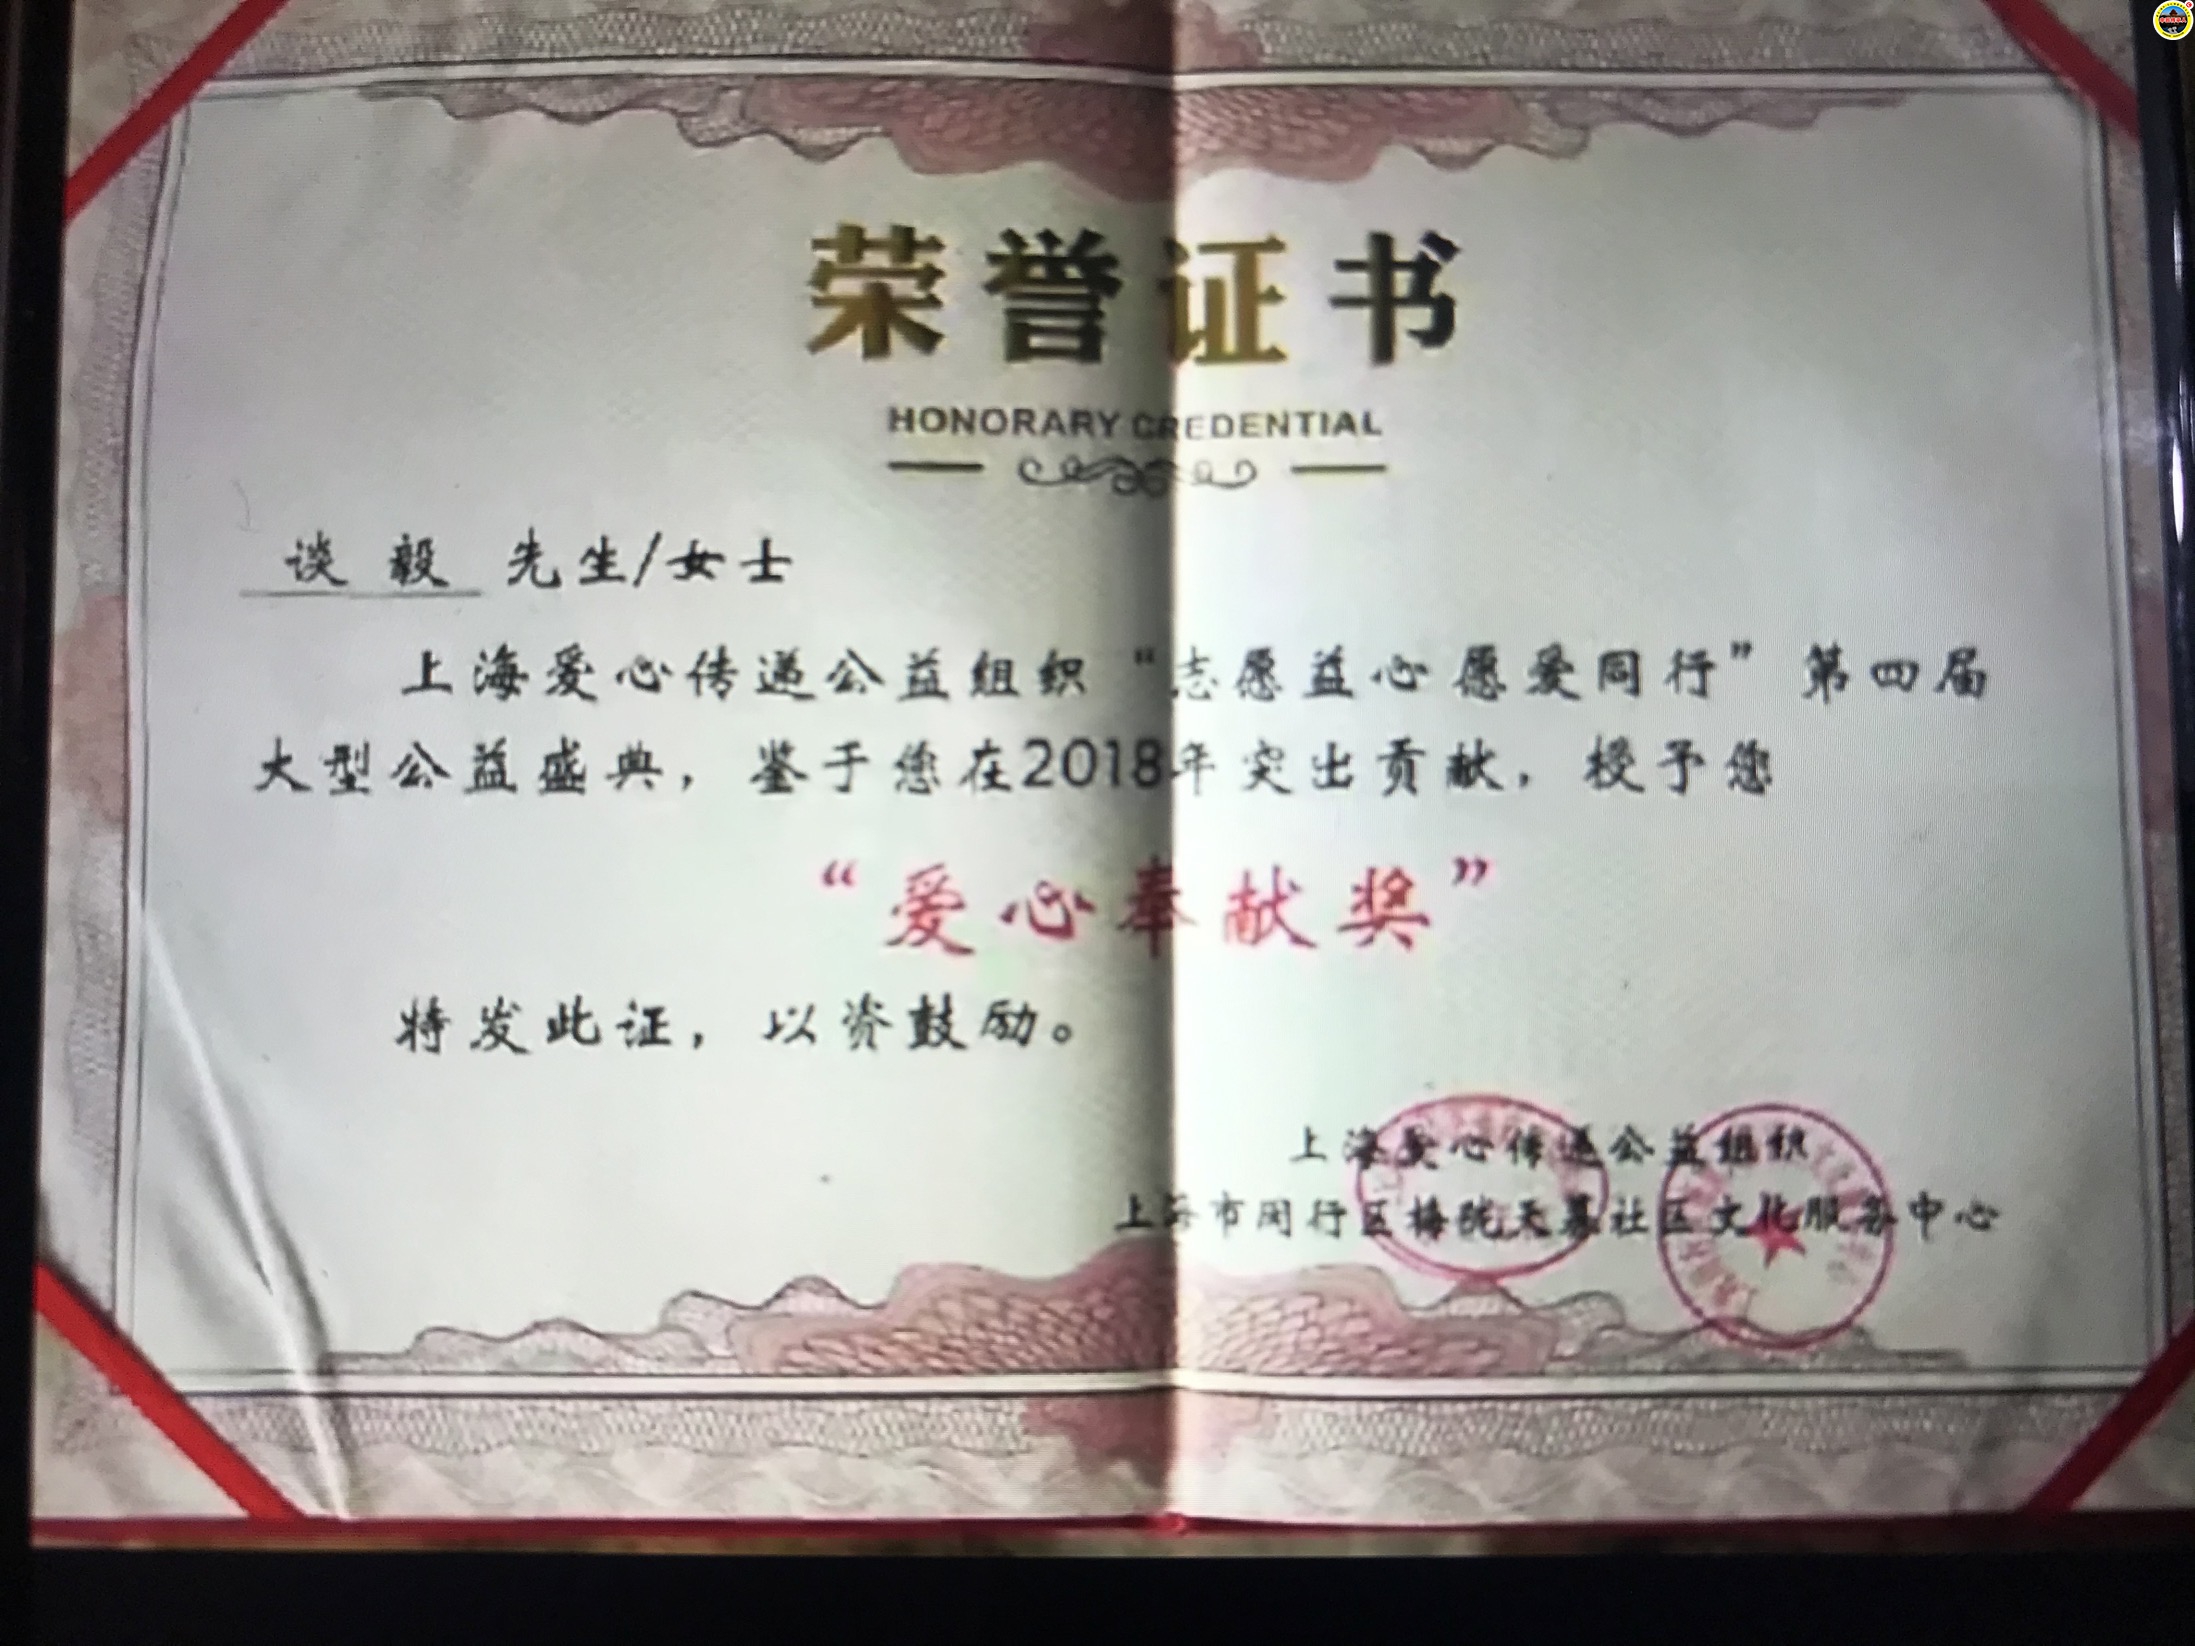 荣誉证书
HONORARY CREDENTIAL
谈毅 先生/女士
上海爱心传递公益组织“志愿益心愿爱同行”第四届
大型公益盛典，鉴于您在2018年突出贡献，授予您
“爱心奉献奖”
特发此证，以资鼓励。
上海爱心传递公益组织
上海市闵行区梅陇天慕社区文化服务中心